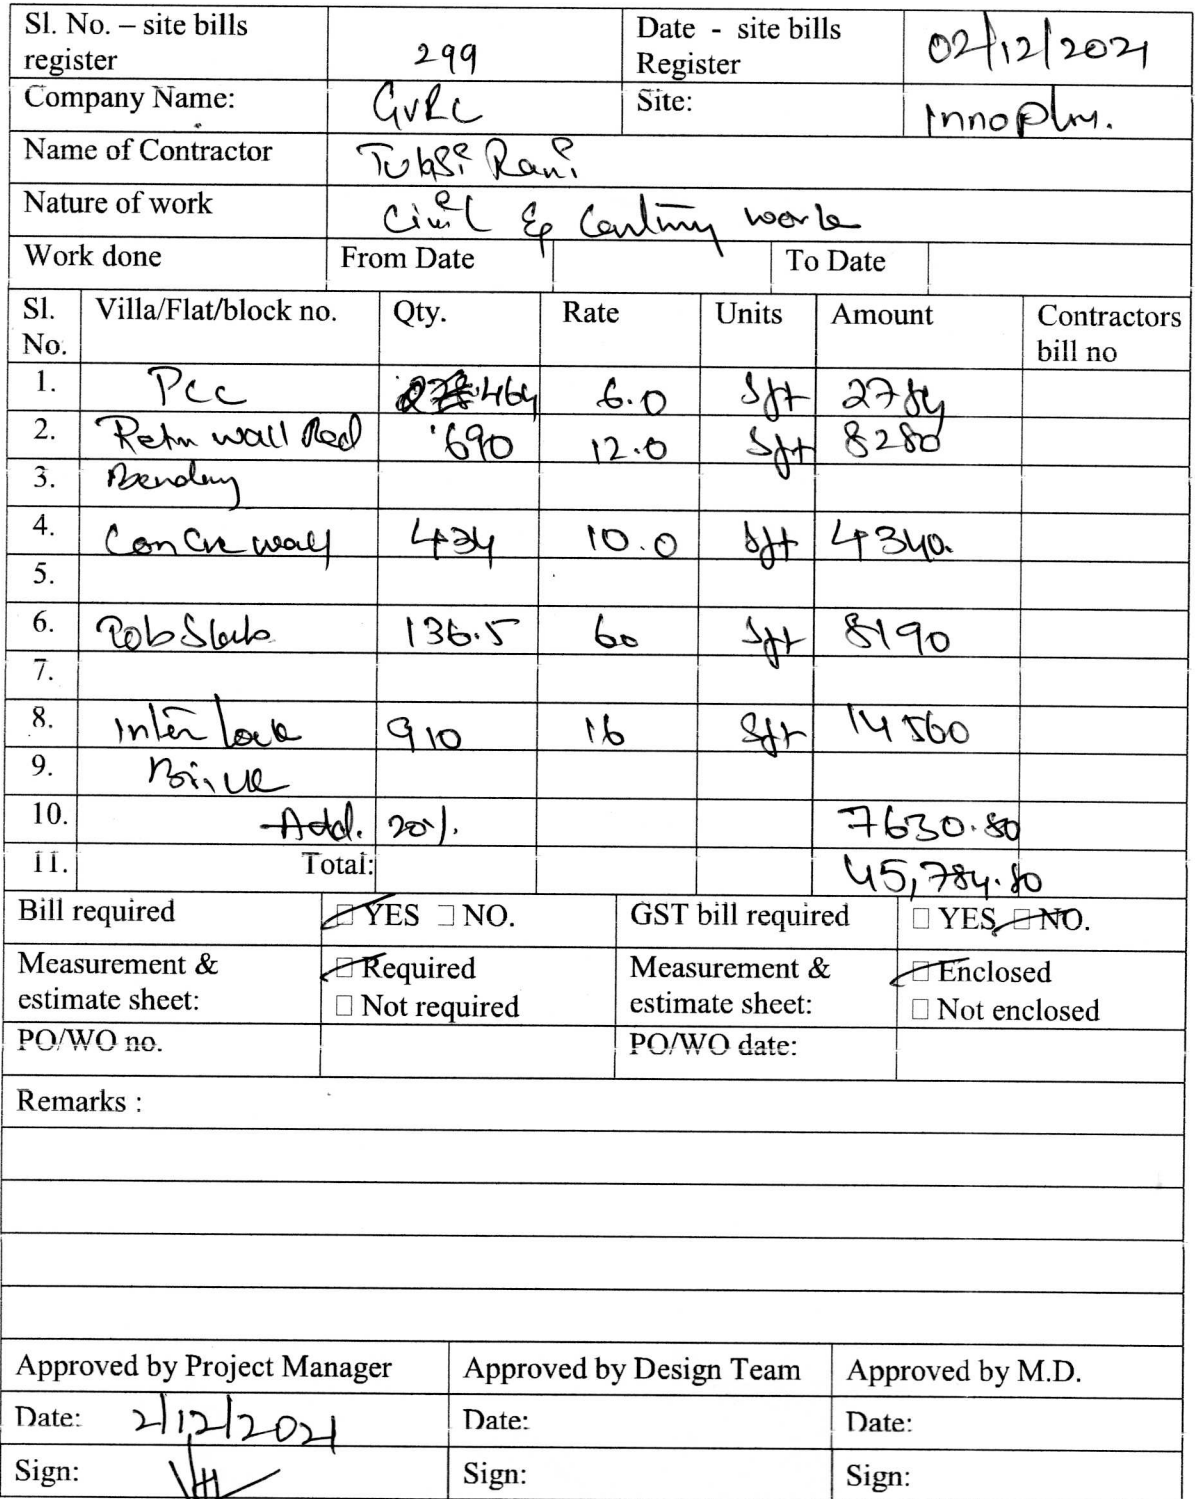 Sl. No. – site bills register 299 Date - site bills Register 02/12/2021
Company Name: GVRC Site: Innopln.
Name of Contractor Tulasi Rani
Nature of work Civil & work
Work done From Date To Date
Sl. No. Villa/Flat/block no. Qty. Rate Units Amount Contractors bill no
1. Pcc 464 6.0 Sft 2784
2. Retn wall Rod 690 12.0 Sft 8280
3. Bending
4. Concre wall 434 10.0 Sft 4340.
5.
6. Slab 136.5 60 Sft 8190
7.
8. Inter lock 910 16 Sft 14560
9.
10. Add. 20%. 7630.80
11. Total: 45,784.80
Bill required ☑ YES ☐ NO. GST bill required ☐ YES ☑ NO.
Measurement & estimate sheet: ☑ Required ☐ Not required Measurement & estimate sheet: ☑ Enclosed ☐ Not enclosed
PO/WO no. PO/WO date:
Remarks :
Approved by Project Manager Approved by Design Team Approved by M.D.
Date: 2/12/2021 Date: Date:
Sign: Sign: Sign: